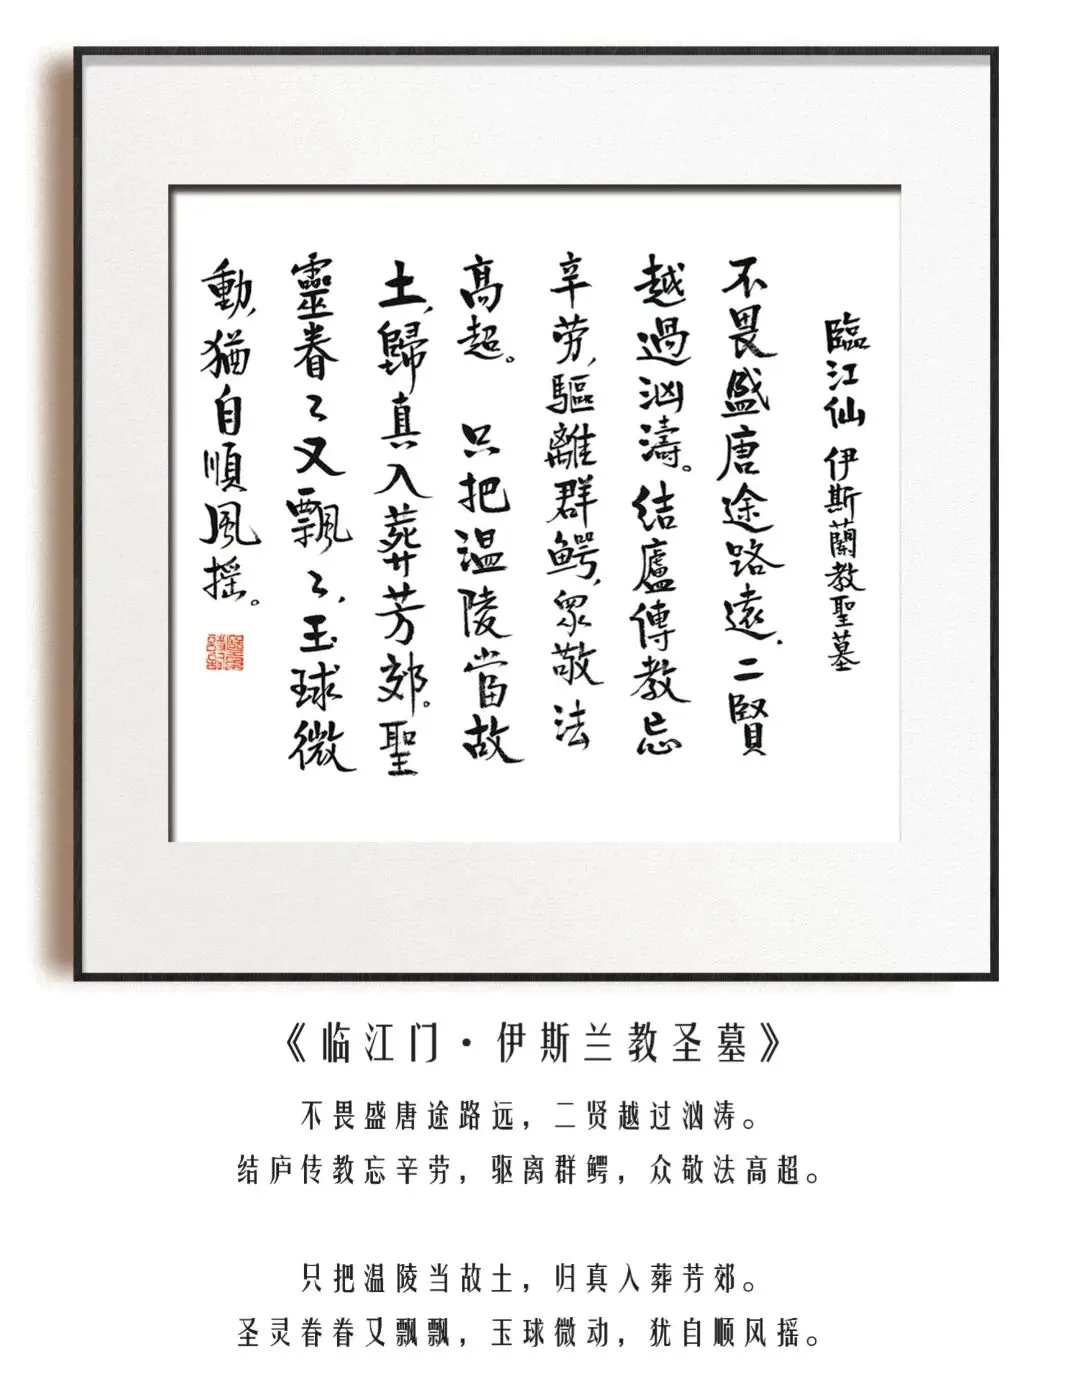 臨江仙 伊斯蘭教聖墓
不畏盛唐途路遠，二賢
越過汹濤。结廬傳教忘
辛劳，驅離群鳄，眾敬法
高超。 只把温陵當故
土，歸真入葬芳郊。聖
靈眷〻又飄〻，玉球微
動，猶自順風摇。
《临江门·伊斯兰教圣墓》
不畏盛唐途路远，二贤越过汹涛。
结庐传教忘辛劳，驱离群鳄，众敬法高超。
只把温陵当故土，归真入葬芳郊。
圣灵眷眷又飘飘，玉球微动，犹自顺风摇。